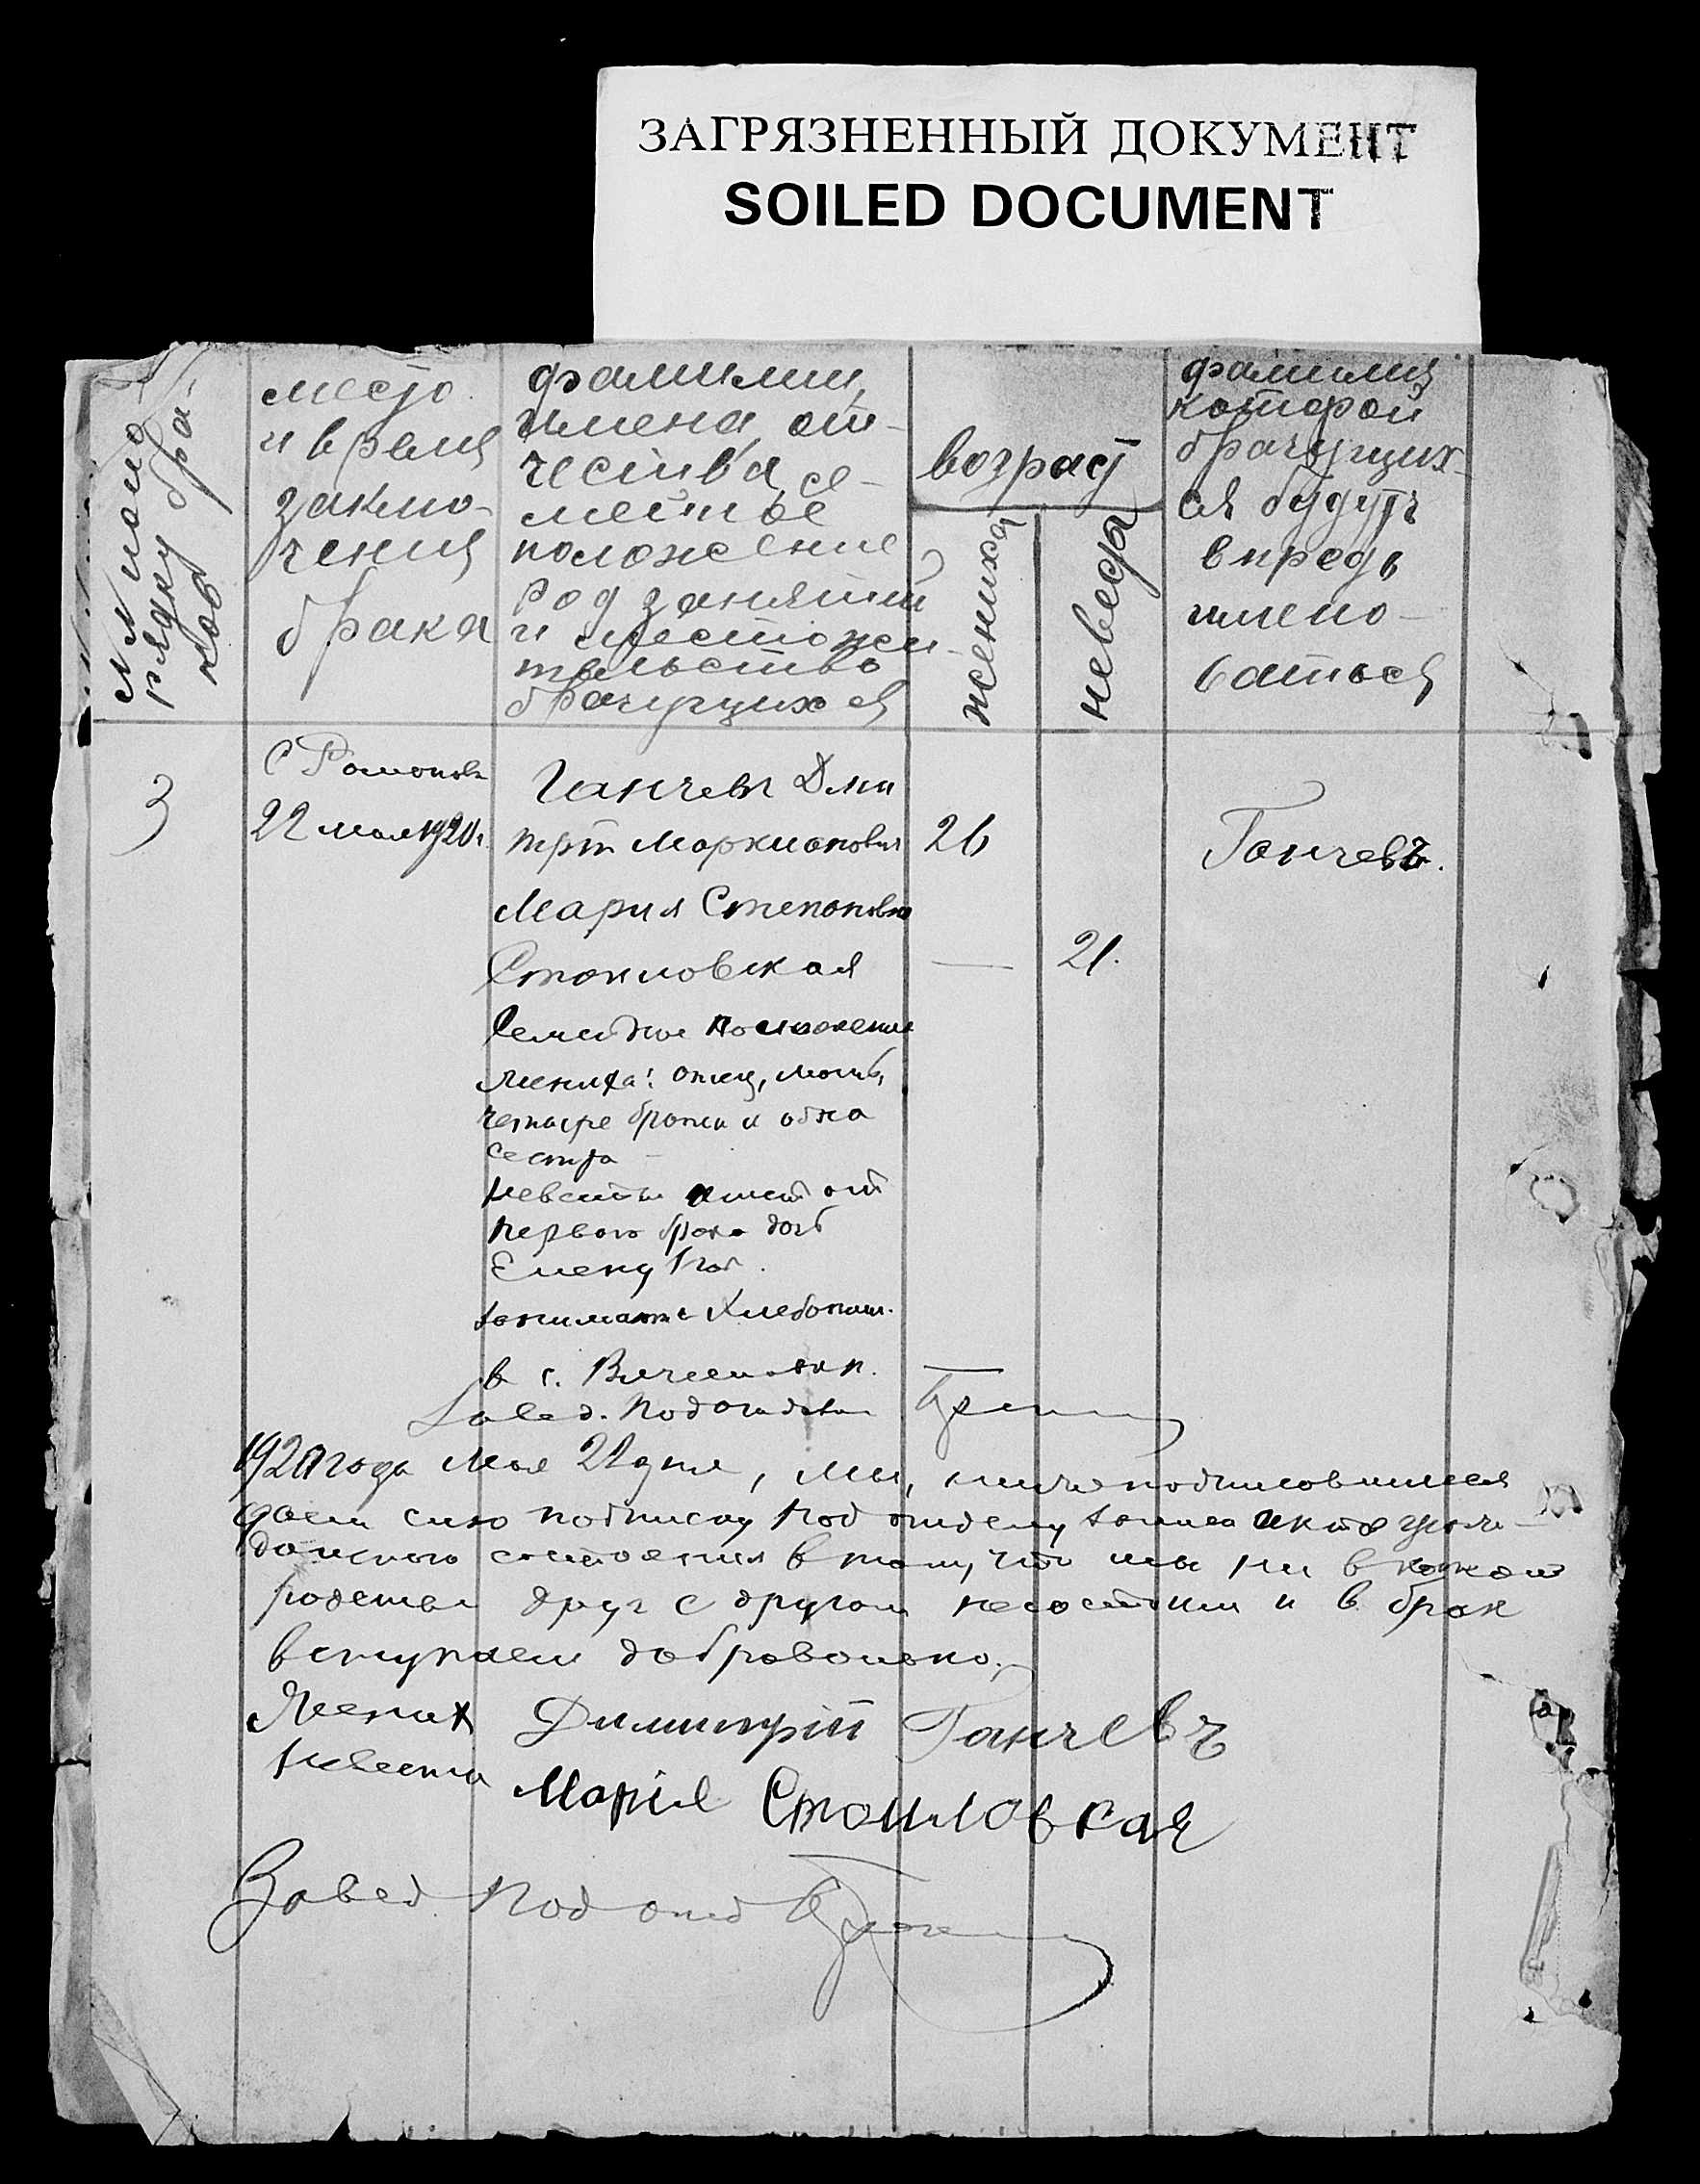 ЗАГРЯЗНЕННЫЙ ДОКУМЕНТ
SOILED DOCUMENT
№№ по по-
рядку бра-
ков
место
и время
заклю-
чения
брака
фамилии,
имена, от-
чества, се-
мейное
положение
род занятий
и местожи-
тельство
брачущихся
возраст
жениха
невесты
фамилия
которой
брачущих-
ся будут
впредь
имено-
ваться
3
с Романовка
22 мая 1920 г.
Ганчевъ Дми
трій Маркианович
26
Ганчевъ.
Мария Степановна
Стоиловская
— 21.
Семейное положение
жениха: отец, мать,
четыре брата и одна
сестра –
невесты имеет от
первого брака дочь
Елену 1 год.
занимаются Хлебопаш.
в с.
Завед. Подотделом
1920 года Мая 22 дня, мы, нижеподписавшиеся
даем сию подписку Подотделу записи актов граж-
данского состояния в том, что мы ни в каком
родстве друг с другом не состоим и в брак
вступаем добровольно.
Жених Димитрій Ганчевъ
Невеста Марія Стоиловская
Завед. Подотд